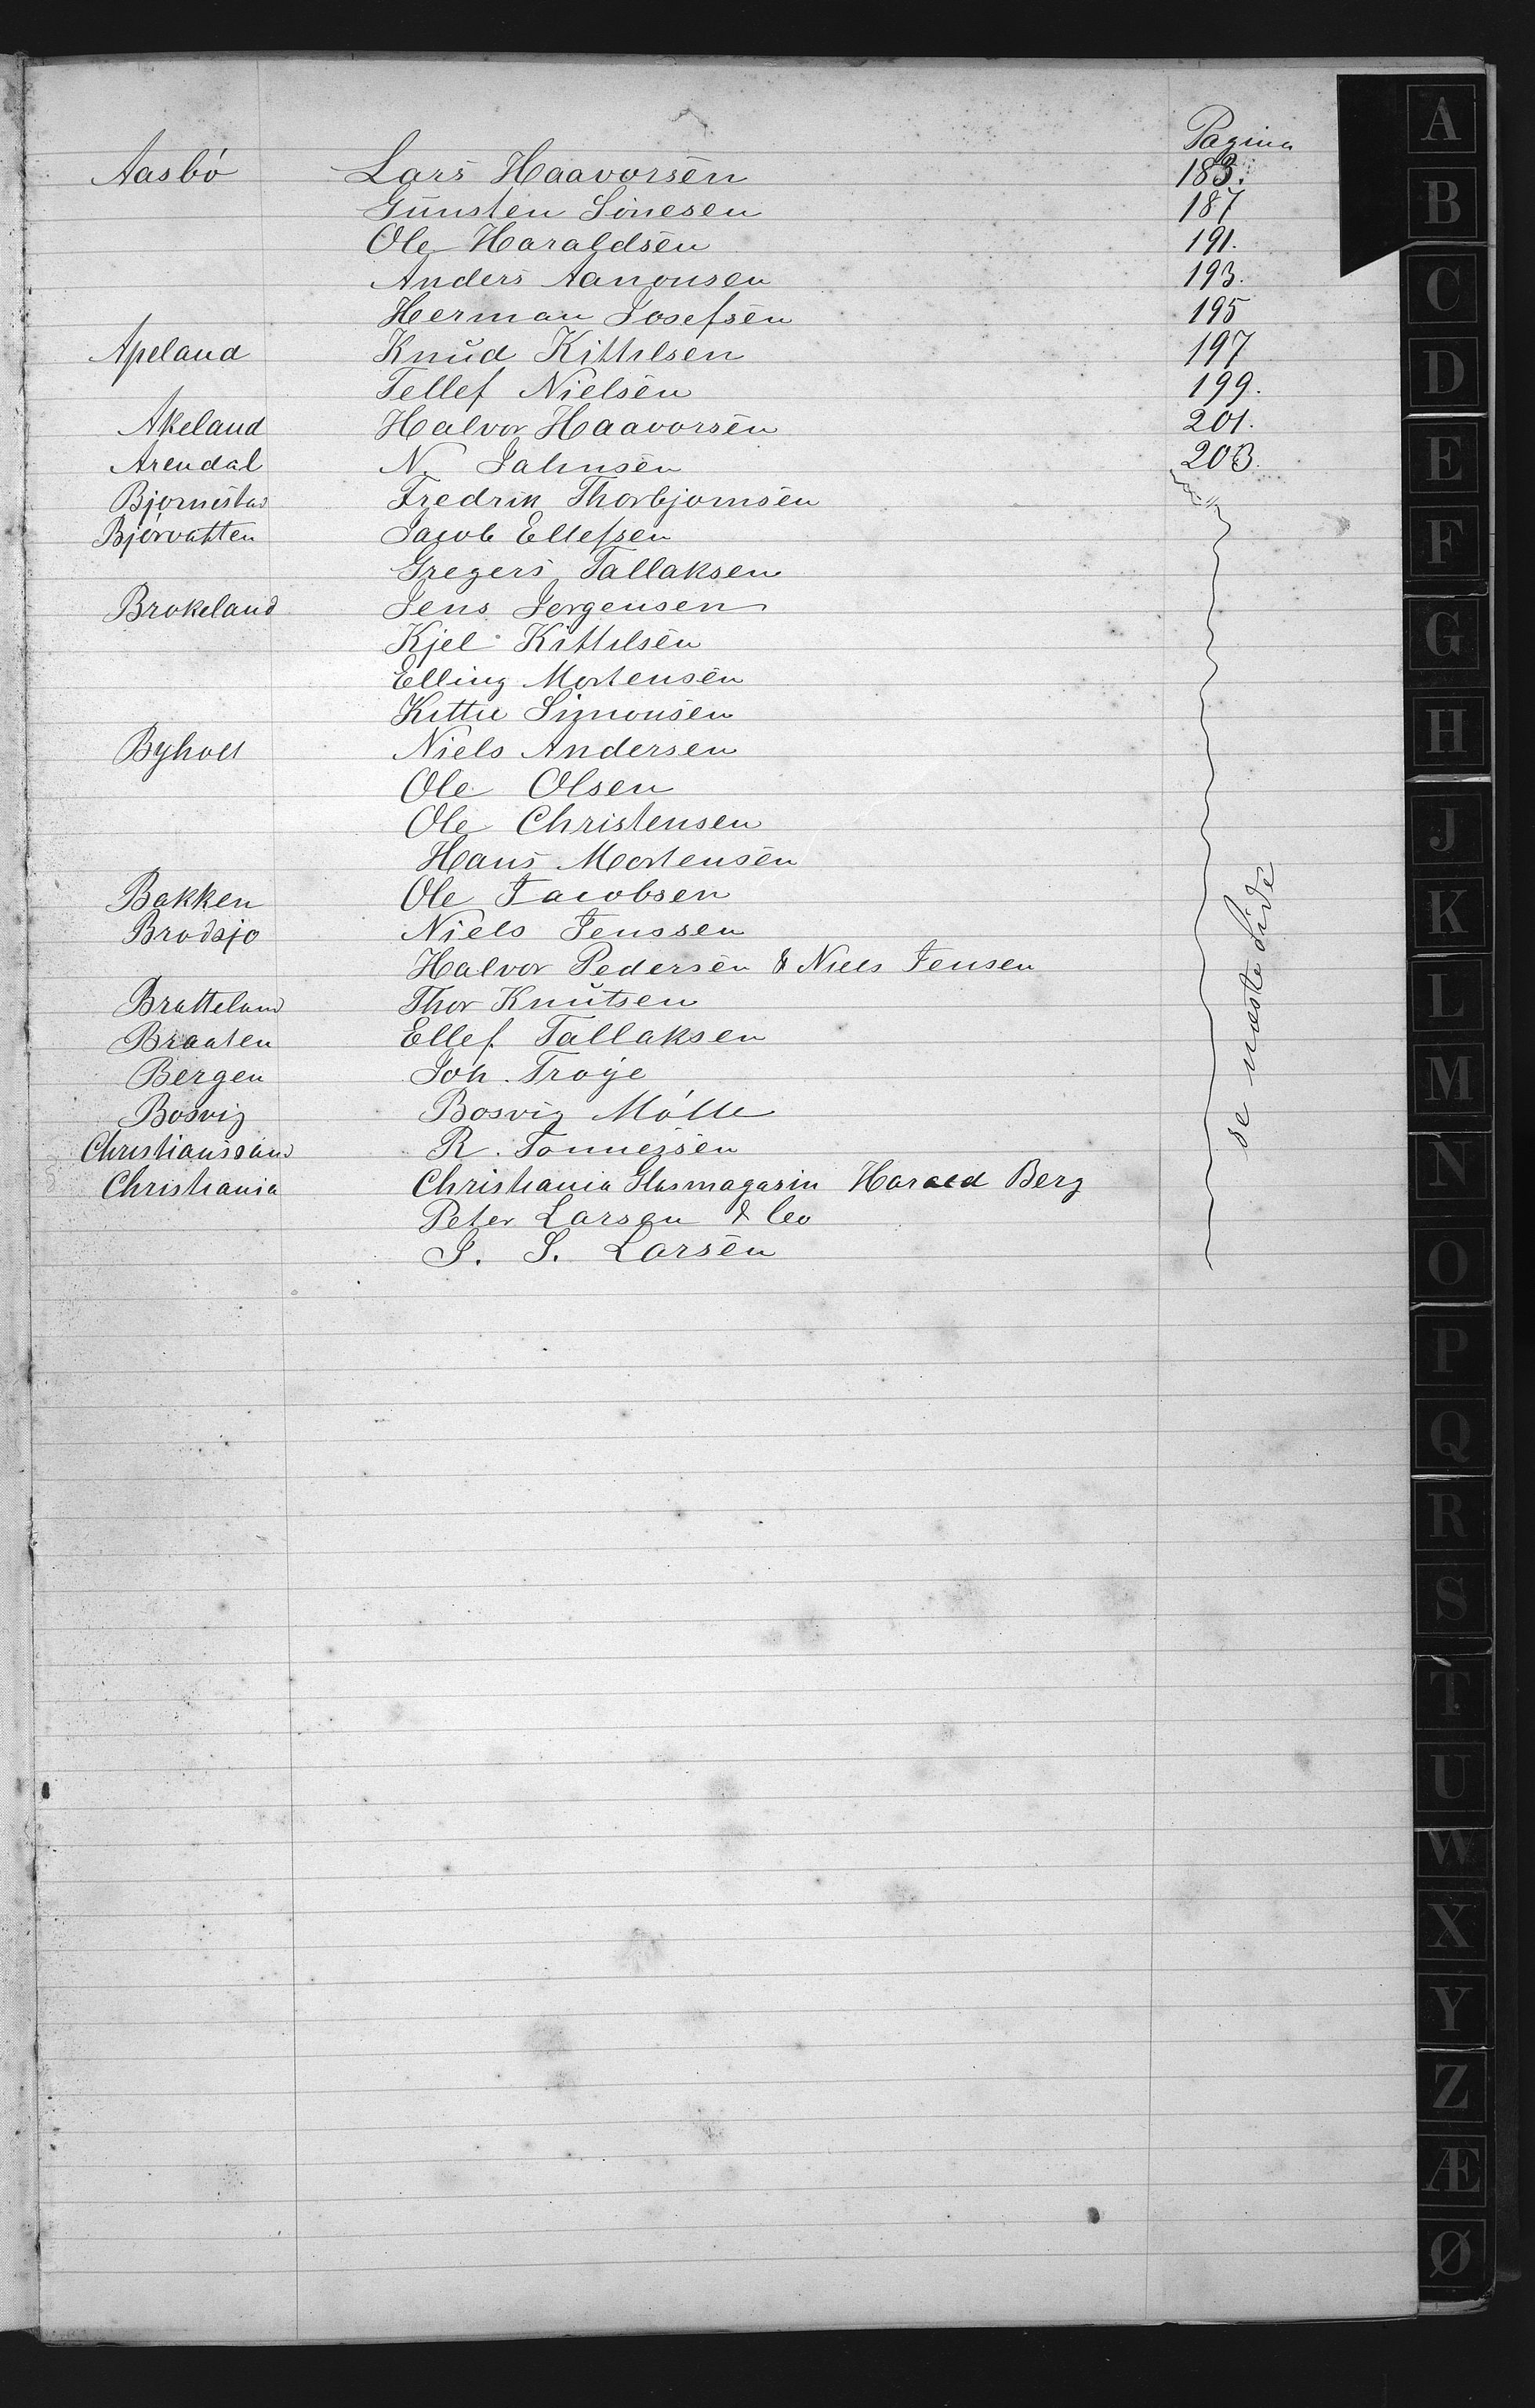 Pagina
Aasbö Lars Haavorsen 183.
Gunsten Sönesen 187
Ole Haraldsen 191.
Anders Aanonsen 193.
Herman Josefsen 195
Apeland Knud Kittilsen 197
Tellef Nielsen 199.
Akeland Halvor Haavorsen 201.
Arendal N. Jahnsen 203.
Bjornestad Fredrik Thorbjornsen
Bjorvatten Jacob Ellefsen
Gregers Tallaksen
Brokeland Jens Jorgensen
Kjel Kittilsen
Elling Mortensen
Simonsen
Byholt Niels Andersen
Ole Olsen
Ole Christensen
Hans Mortensen
Bakken Ole Jacobsen
Brodsjo Niels Jenssen
Halvor Pedersen & Niels Jensen
Bratteland Thor Knutsen
Braaten Ellef Tallaksen
Bergen Joh. Troye
Bosvig Bosvig Mölle
Christianssand R. Tonnessen
Christiania Christiania Glasmagasin Harald Berg
Peter Larsen & Co
Larsen
se næste Side
A
B
C
D
E
F
G
H
J
K
L
M
N
O
P
Q
R
S
T
U
W
X
Y
Z
Æ
Ø